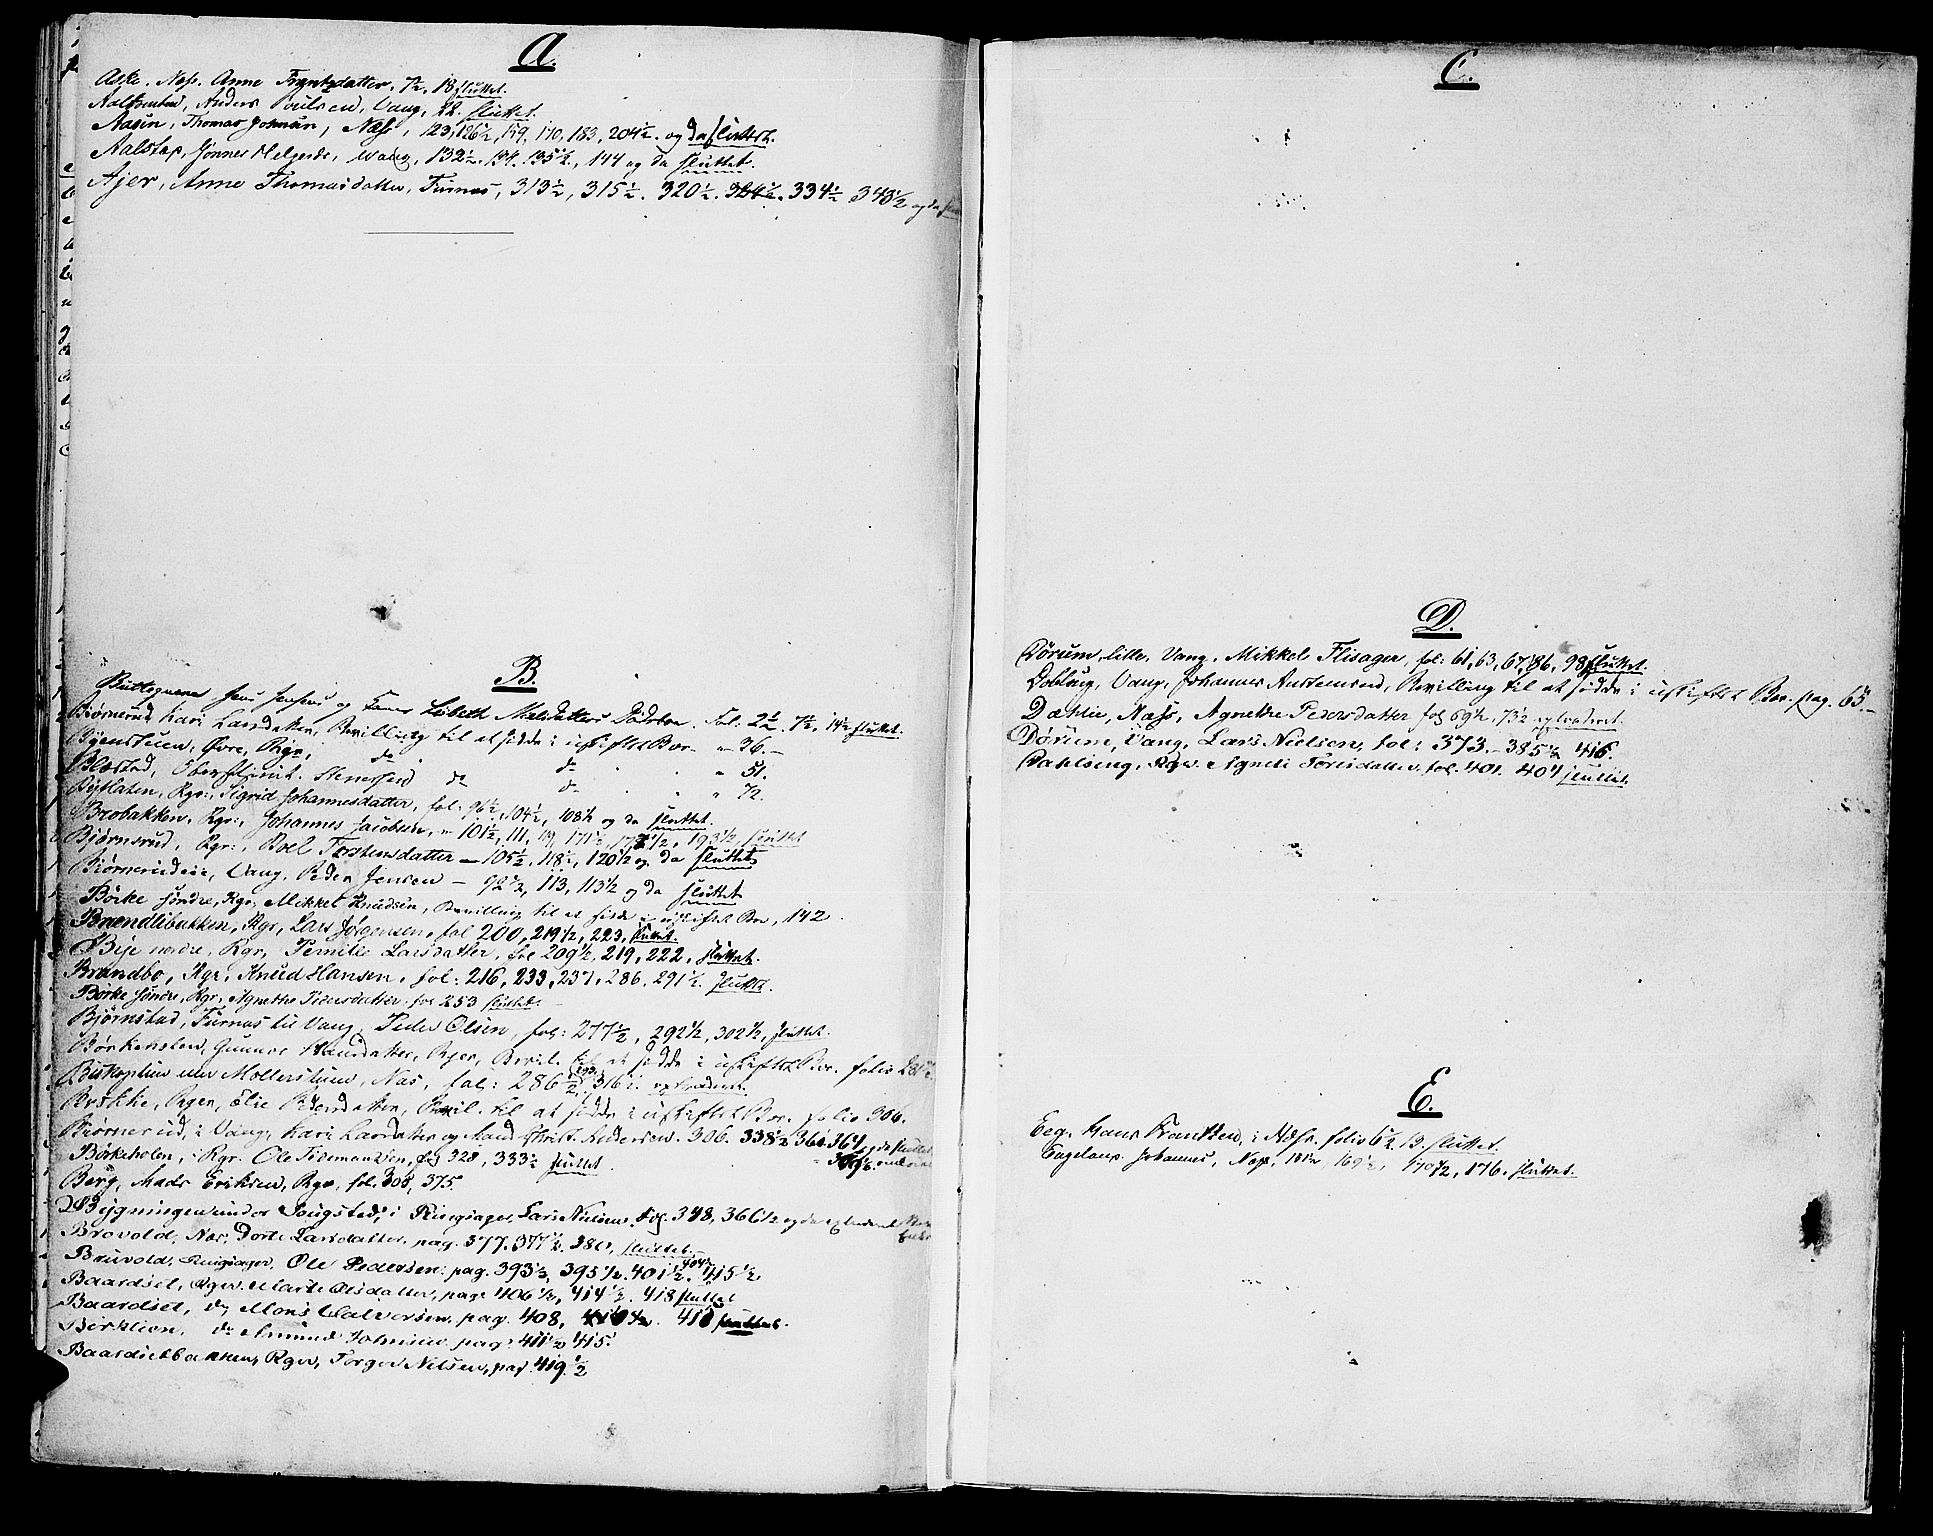 A.
Aske, Næs, Anne Frantzdatter, 7½, 18 sluttet.
Anders Poulsen, Vang, 22 sluttet.
Aasen, Thomas Johnsen, Næss, 123, 126½, 159, 170, 183, 204½ og da sluttet.
Aalstad, Gønner Helgesd:, Wang, 132½, 134, 135½, 144 og da sluttet.
Ajer, Anne Thomasdatter, Furnæs, 313½, 315½. 320½. 324½. 334½ 343½ og da
B.
Jens Jensens og Lisbeth Matsdatters Dødsbo. Fol. 2½. 7½, 14½ sluttet.
Bjørnerud Kari Larsdatter, Bevilling til at sidde i uskiftet Boe - 36.-
Byensteien, Øvre, Rgr, do do " 51.
Blæstad, Oberstlieut. Stensfeld do do " 72.
Byflaten, Rgr:, Sigrid Johannesdatter, fol: 96½, 104½, 108½ og da sluttet.
Brobakken, Rgr:, Johannes Jacobsen, - 101½, 111, 119, 171½, 193½ sluttet
Bjørnsrud, Rgr:, Boel Torstensdatter - 105½, 118½, 120½ og da sluttet
Bjørnerudeie, Vang, Peder Jensen - 92½, 113, 113½ og da sluttet
Børke søndre, Rgr, Mikkel Knudsen, Bevilling til at sidde i uskiftet Boe, 142.
Brændlibakken, Rgr, Lars Jørgensen, fol 200, 219½, 223, sluttet.
Bye nordre, Rgr, Pernille Larsdatter, fol 209½, 219, 222, sluttet.
Brandbo, Rgr, Knud Hansen, fol: 216, 233, 237, 286, 291½. sluttet.
Børke søndre, Rgr, Agnethe Pedersdatter, fol 253 sluttet.
Bjørnstad, Furnæs til Vang, Peder Olsen, fol: 277½, 292½, 302½, sluttet.
Børkeholen, Gunnor Hansdatter, Rger, Bevil. til at sidde i uskiftet Boe. folio 281½.
Biskoplien under Møllerstuen, Næs, fol: 286½, 293, 316½. extraderet.
Brække, Rger, Elie Pedersdatter, Bevil. til at sidde i uskiftet Boe. folio 306.
Bjørnerud, i Vang, Kari Larsdatter og Mand Christ. Andersen. 306. 338½ 361 364 og da sluttet
Børkeholen, i Rgr. Ole Tidemandsen, fol 328, 333½ sluttet.
Berg, Mads Eriksen, Rgr, fol. 308, 375.
Bygningen under Sougsted, i Ringsager, Lars Nielsen. Fol. 348, 366½ og da extraderet
Brovold, Næs, Dorte Larsdatter, pag. 377. 377½. 380, sluttet.
Bruvold, Ringsager, Ole Pedersen. pag. 393½, 395½. 401½. 404½ 415½
Baardset, Rger. Marte Olsdatter, pag. 406½, 414½. 418 sluttet
Baardset, do Mons Halvorsen, pag. 408, 410½. 411 sluttet.
Birklien, do Amund Johnsen pag. 411½ 415.
Baardsetbakken, Rger, Torger Nilsen, pag. 419.½
C.
D.
Dørum, lille, Vang, Mikkel Flisager, fol: 61, 63, 67, 86, 98 sluttet.
Doblug, Vang, Johannes Austensrud, Bevilling til at sidde i uskiftet Boe. pag. 63.-
Dæhlie, Næss, Agnethe Pedersdatter fol 69½, 73½ extraderet.
Dørum, Vang, Lars Nielsen, fol: 373.- 385½ 416.
Dahlseng, Rger. Agnete Torersdatter, fol. 401. 404 sluttet.
E.
Eeg, Hans Frantzen, i Næss. folio 6½ 13. sluttet.
Engelaug Johannes, Næss, 161½, 169½, 170½, 176. sluttet.